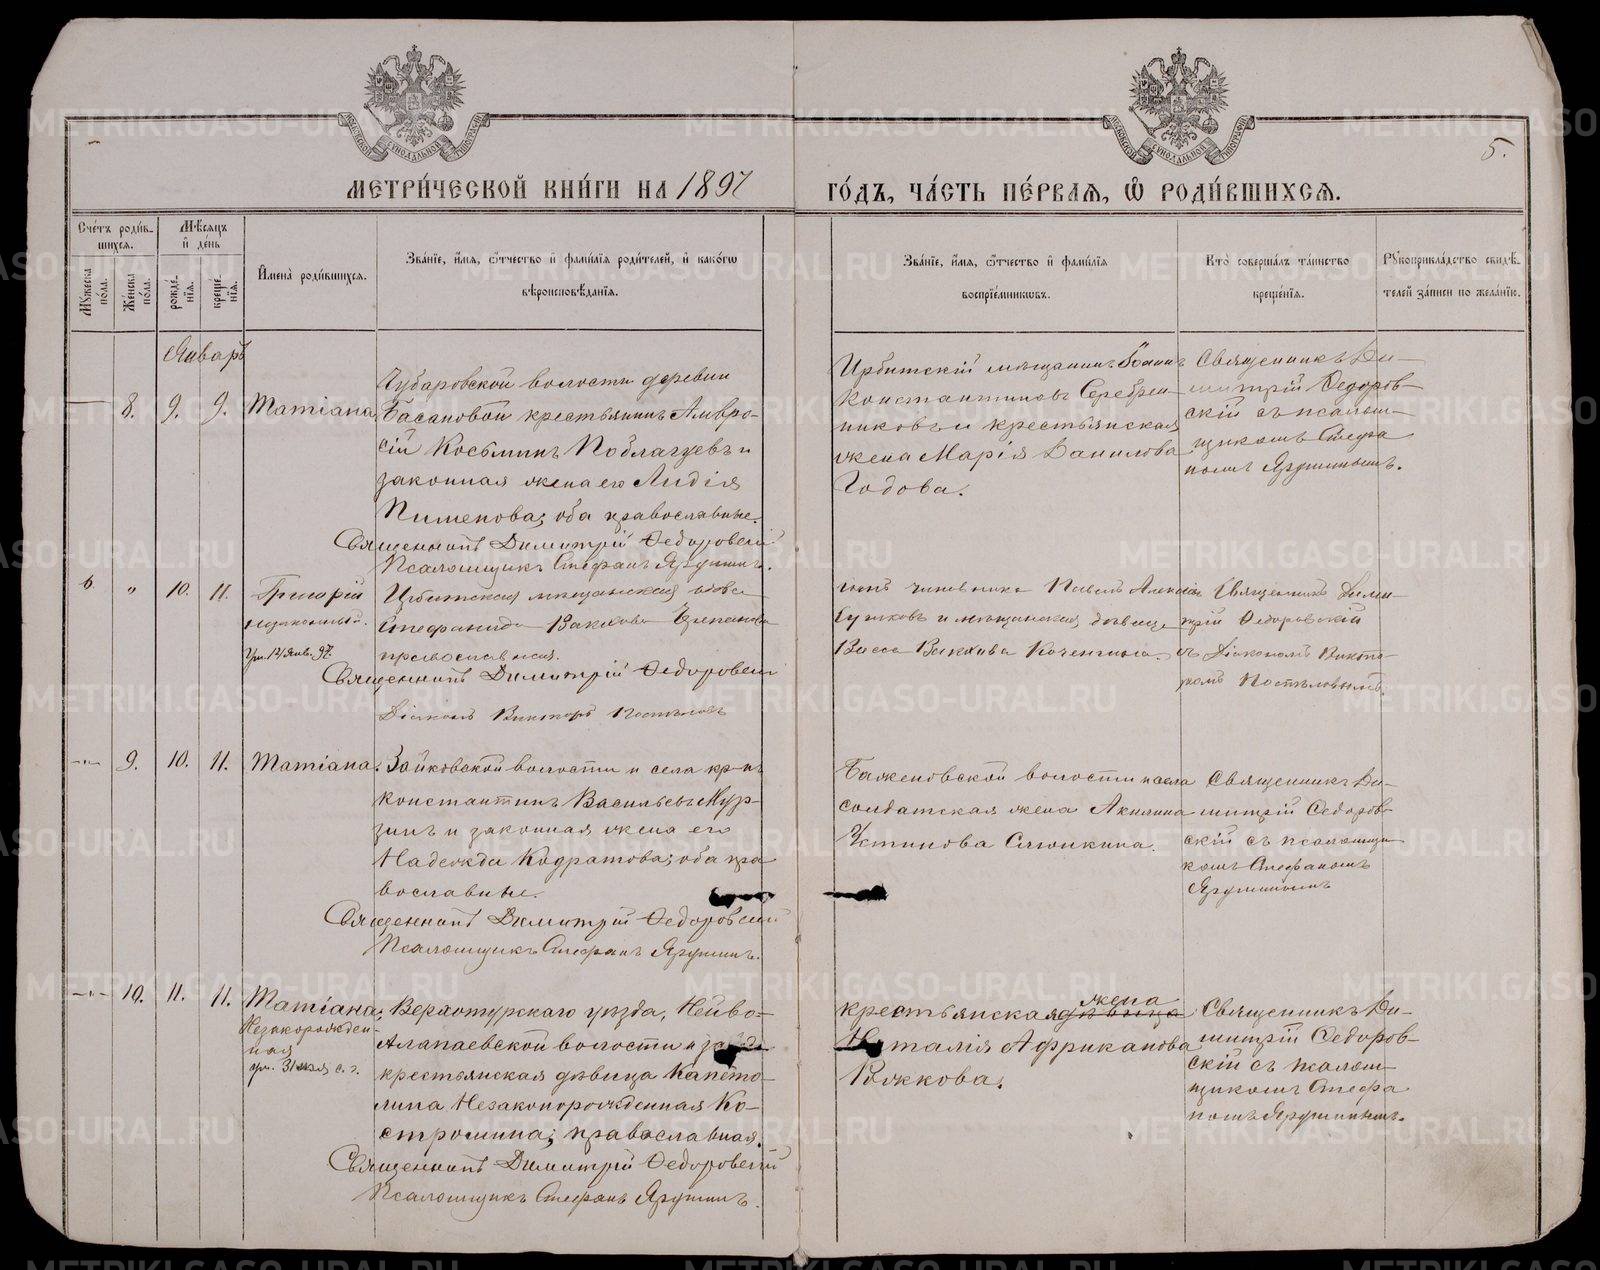 МЕТРИ́ЧЕСКОЙ КНИ́ГИ НА 1897
ГО́ДЪ, ЧА́СТЬ ПЕ́РВАЯ, Ѡ РОДИ́ВШИХСЯ.
5.
Сче́тъ роди́в-
шихся.
Мѣ́сяцъ
и де́нь
Мꙋ́жеска по́ла.
Же́нска по́ла.
рожде́-
нїя.
креще́-
нїя.
Имена̀ роди́вшихся.
Зва́нїе, и́мя, ѻ́тчество и фами́лїя роди́телей, и како́гѡ
вѣроисповѣ́данїя.
Зва́нїе, и́мя, ѻ́тчество и фами́лїя
воспрїе́мникѡвъ.
Кто̀ соверша́лъ та́инство
креще́нїя.
Рꙋкоприкла́дство свидѣ́-
телей за́писи по жела́нїю.
Январь
8. 9. 9. Татіана
Чубаровской волости деревни
Басановой крестьянинъ Амвро-
сій Косьминъ Поблагуевъ и
законная жена его Лидія
Пименова; оба православные.
Священникъ Димитрій Ѳедоровскій
Псаломщикъ Стефанъ Ярушинъ.
Ирбитскій мѣщанинъ Іоаннъ
Константиновъ Серебрен-
никовъ и крестьянская
жена Марія Данилова
Годова.
Священникъ Ди-
митрій Ѳедоров-
скій съ псалом-
щикомъ Стефа
номъ Ярушинымъ.
6 " 10. 11. Григорій
незаконный.
Ум. 12 Янв. 97.
Ирбитская мѣщанская вдова
Стефанида Вакхова
православная.
Священникъ Димитрій Ѳедоровскій
Діаконъ Викторъ Постѣловъ
сынъ чиновника Павелъ Алексіевъ
и мѣщанская дѣвица
Васса Вакхова
Священникъ Дими
трій Ѳедоровскій
съ Діакономъ Викто
ромъ Постѣловымъ.
9. 10. 11. Татіана.
Зайковской волости и села кр-нъ
Константинъ Васильевъ Мур-
зинъ и законная жена его
Надежда Кодратова; оба пра
вославные.
Священникъ Димитрій Ѳедоровскій
Псаломщикъ Стефанъ Ярушинъ.
Баженовской волости и села
солдатская жена Акилина
Устинова Слинкина.
Священникъ Ди-
митрій Ѳедоров-
скій съ псаломщи
комъ Стефаномъ
Ярушинымъ
10. 11. 11. Татіана,
Незакорожден-
ная
ум. 31 мая с. г.
Верхотурскаго уѣзда, Нейво-
Алапаевской волости и завода
крестьянская дѣвица Капето-
лина Незаконорожденная Ко-
стромина; православная.
Священникъ Димитрій Ѳедоровскій
Псаломщикъ Стефанъ Ярушинъ.
жена
крестьянская дѣвица
Наталія Африканова
Рожкова.
Священникъ Ди-
митрій Ѳедоров-
скій съ псалом-
щикомъ Стефа
номъ Ярушинымъ.
METRIKI.GASO-URAL.RU